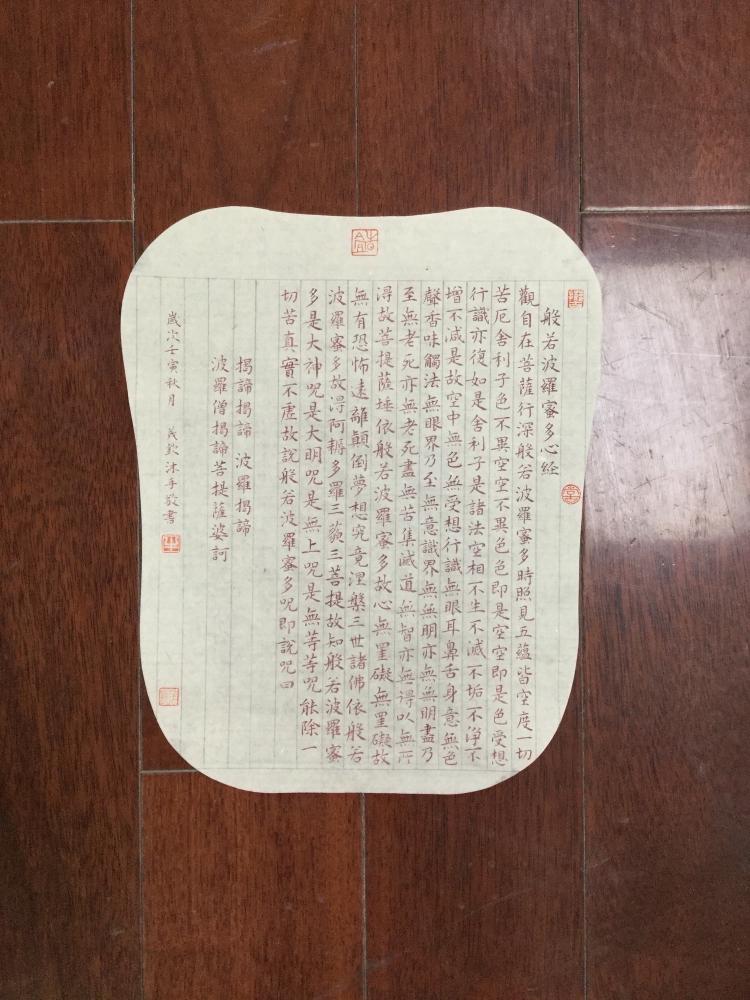 般若波羅蜜多心經
觀自在菩薩行深般若波羅蜜多時照見五蘊皆空度一切
苦厄舍利子色不異空空不異色色即是空空即是色受想
行識亦復如是舍利子是諸法空相不生不滅不垢不淨不
增不減是故空中無色無受想行識無眼耳鼻舌身意無色
聲香味觸法無眼界乃至無意識界無無明亦無無明盡乃
至無老死亦無老死盡無苦集滅道無智亦無得以無所
得故菩提薩埵依般若波羅蜜多故心無罣礙無罣礙故
無有恐怖遠離顛倒夢想究竟涅槃三世諸佛依般若
波羅蜜多故得阿耨多羅三藐三菩提故知般若波羅蜜
多是大神咒是大明咒是無上咒是無等等咒能除一
切苦真實不虛故說般若波羅蜜多咒即說咒曰
揭諦揭諦 波羅揭諦
波羅僧揭諦菩提薩婆訶
歲次壬寅秋月 義欽沐手敬書